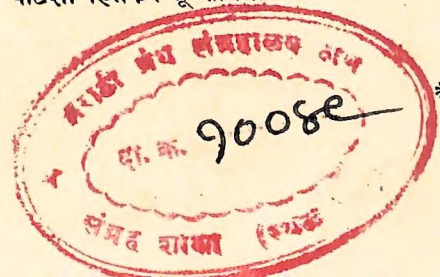 मराठी ग्रंथ संग्रहालय ठाणे
दा. क्र. १००४९
संग्रह शाखा (स्थळ
*